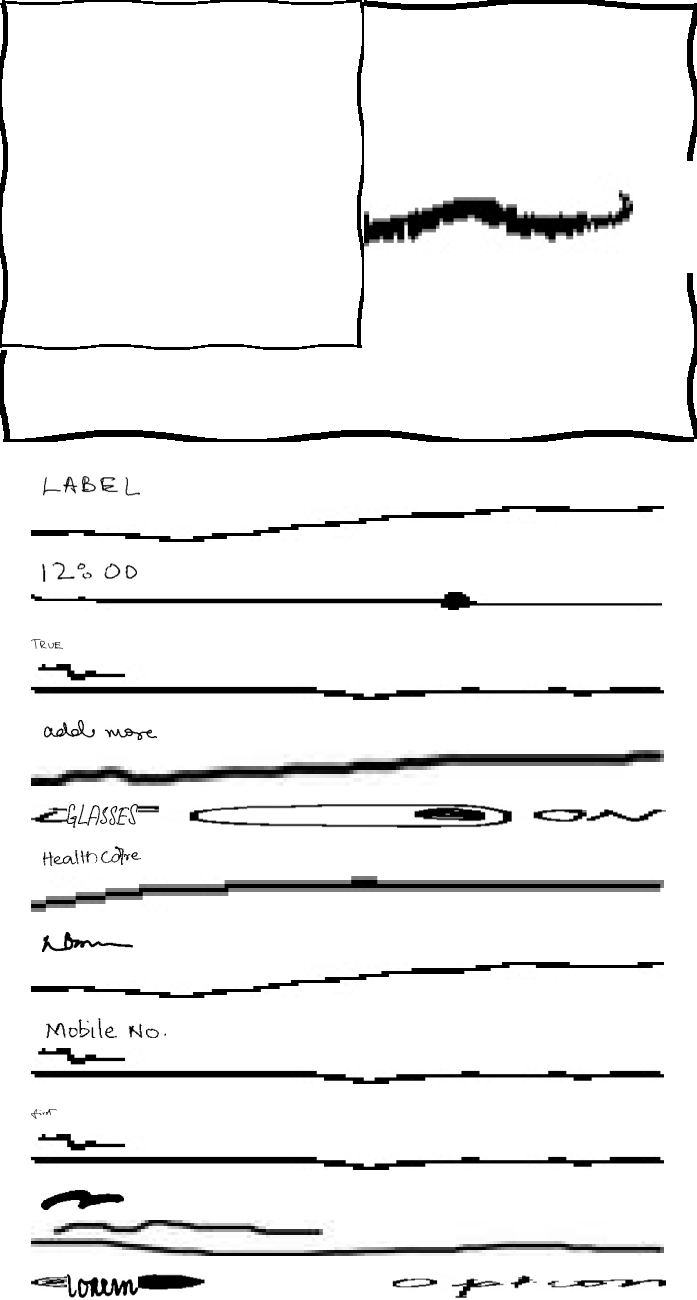 LABEL
12%00
TRUE
add more
GLASSES ON
Healthcare
Mobile No.
first
lorem option